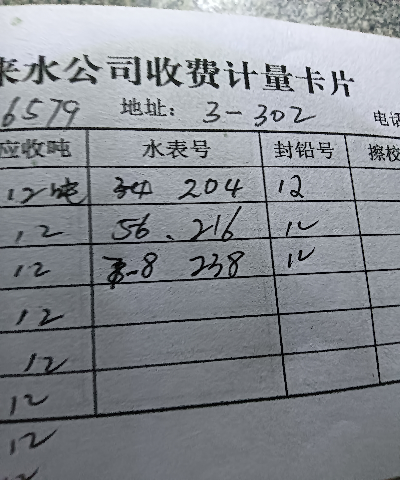 来水公司收费计量卡片
6579 地址: 3-302 电话
应收吨 水表号 封铅号 擦校
12吨 34 204 12
12 56、216 12
12 8 238 12
12
12
12
12
12